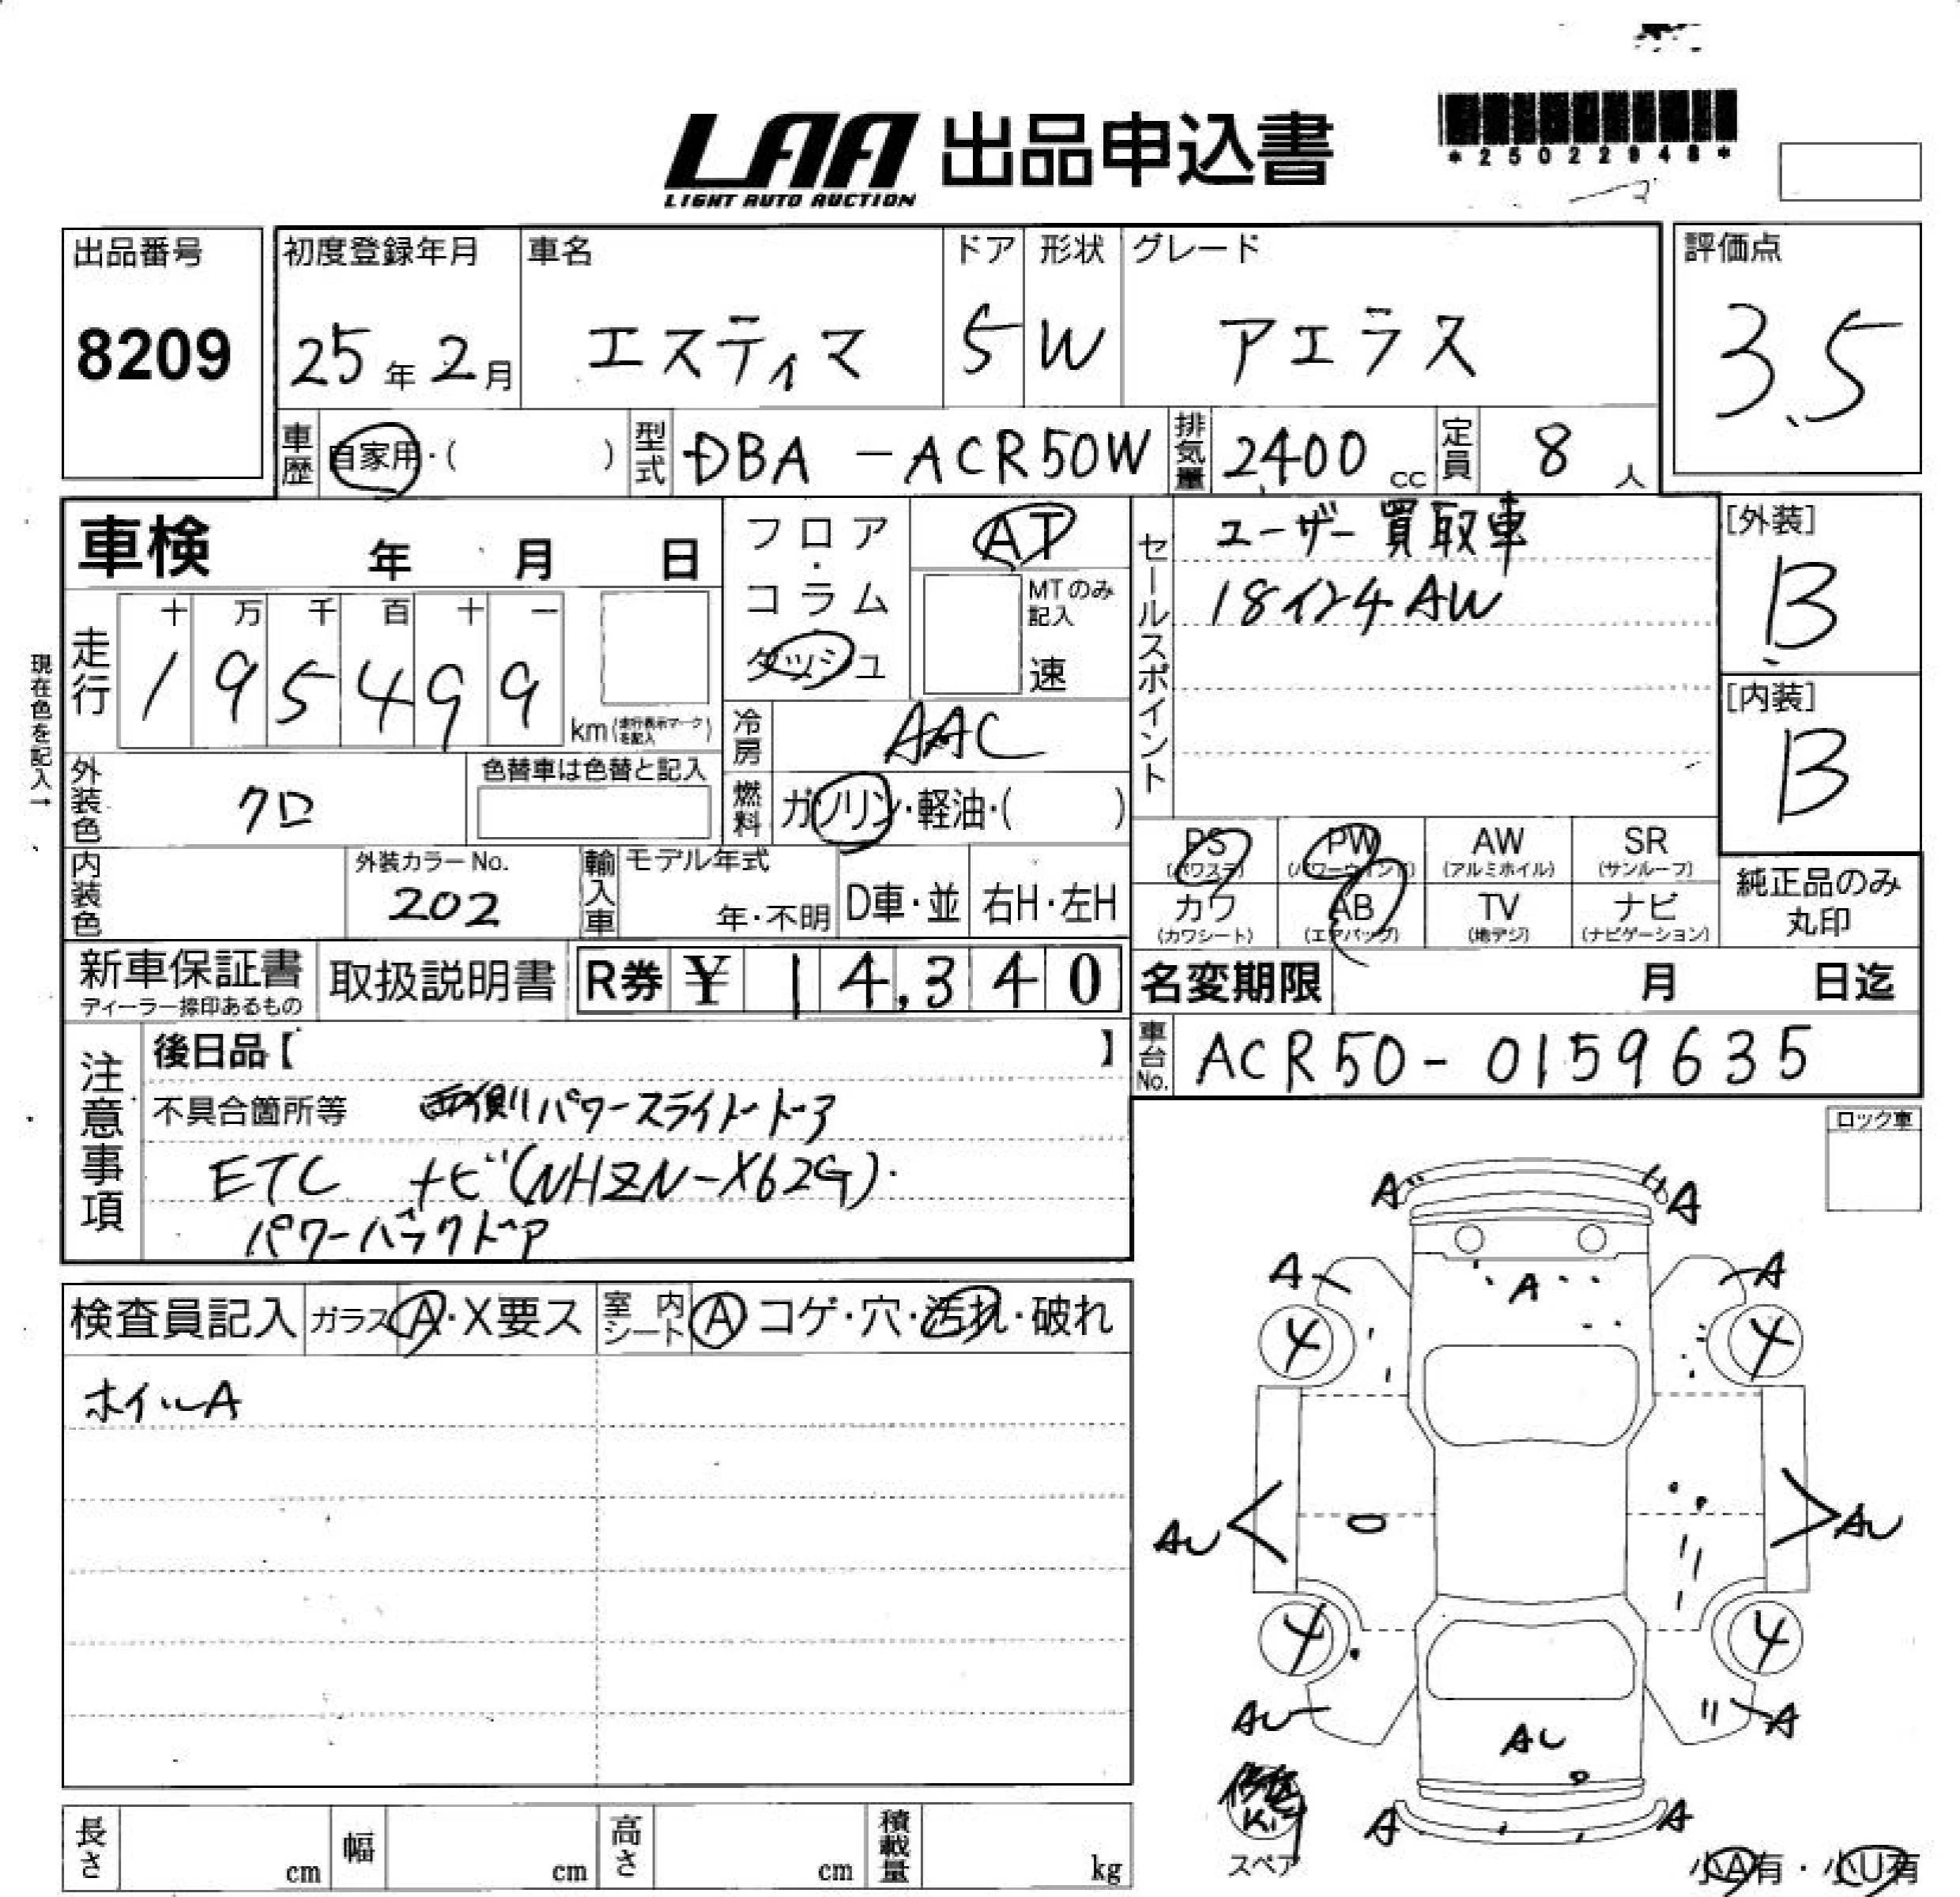 LAA 出品申込書
LIGHT AUTO AUCTION
*25022948*
出品番号
8209
初度登録年月
25年2月
車名
エスティマ
ドア
5
形状
W
グレード
アエラス
評価点
3.5
車歴 自家用・( )
型式 DBA-ACR50W
排気量 2400 cc
定員 8 人
車検 年 月 日
フロア・コラム
ダッシュ
AT
MTのみ記入
速
セールスポイント
ユーザー買取車
18インチAW
[外装]
B
[内装]
B
現在色を記入→
走行
十 万 千 百 十 一
1 9 5 4 9 9
km (走行表示マークを記入)
冷房 AAC
燃料 ガソリン・軽油・( )
外装色 クロ
色替車は色替と記入
内装色
外装カラーNo.
202
輸入車
モデル年式
年・不明
D車・並
右H・左H
PS (パワステ)
PW (パワーウインド)
AW (アルミホイル)
SR (サンルーフ)
カワ (カワシート)
AB (エアバック)
TV (地デジ)
ナビ (ナビゲーション)
純正品のみ
丸印
新車保証書
ディーラー捺印あるもの
取扱説明書
R券 ¥ 14,340
名変期限 月 日迄
車台No. ACR50-0159635
注意事項
後日品【 】
不具合箇所等 両側パワースライドドア
ETC ナビ(NHZN-X62G)
パワーバックドア
ロック車
検査員記入
ガラス A・X要ス
室内シート A コゲ・穴・汚れ・破れ
ホイルA
A A
A A A
4 4
AU AU
4 4
AU AU A
A A
スペア
小A有・小U有
長さ cm
幅 cm
高さ cm
積載量 kg